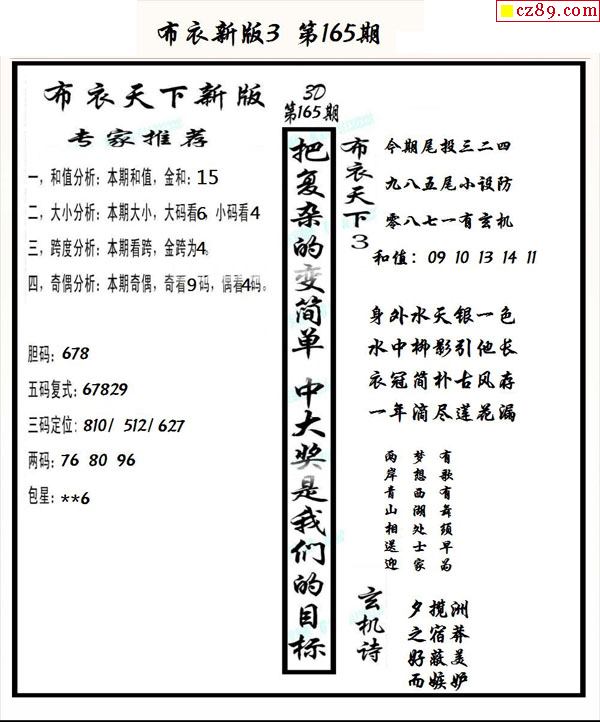 cz89.com
布衣新版3 第165期
布衣天下新版
专家推荐
一，和值分析：本期和值，金和：15
二，大小分析：本期大小，大码看6，小码看4
三，跨度分析：本期看跨，金跨为4。
四，奇偶分析：本期奇偶，奇看9码，偶看4码。
胆码：678
五码复式：67829
三码定位：810/ 512/ 627
两码：76 80 96
包星：**6
3D
第165期
把复杂的变简单 中大奖是我们的目标
布衣天下3
今期尾投三二四
九八五尾小设防
零八七一有玄机
和值：09 10 13 14 11
身外水天银一色
水中柳影引他长
衣冠简朴古风存
一年滴尽莲花漏
有歌有舞须早为
梦想西湖处士家
两岸青山相送迎
玄机诗
夕揽洲
之宿莽
好蔽美
而嫉妒